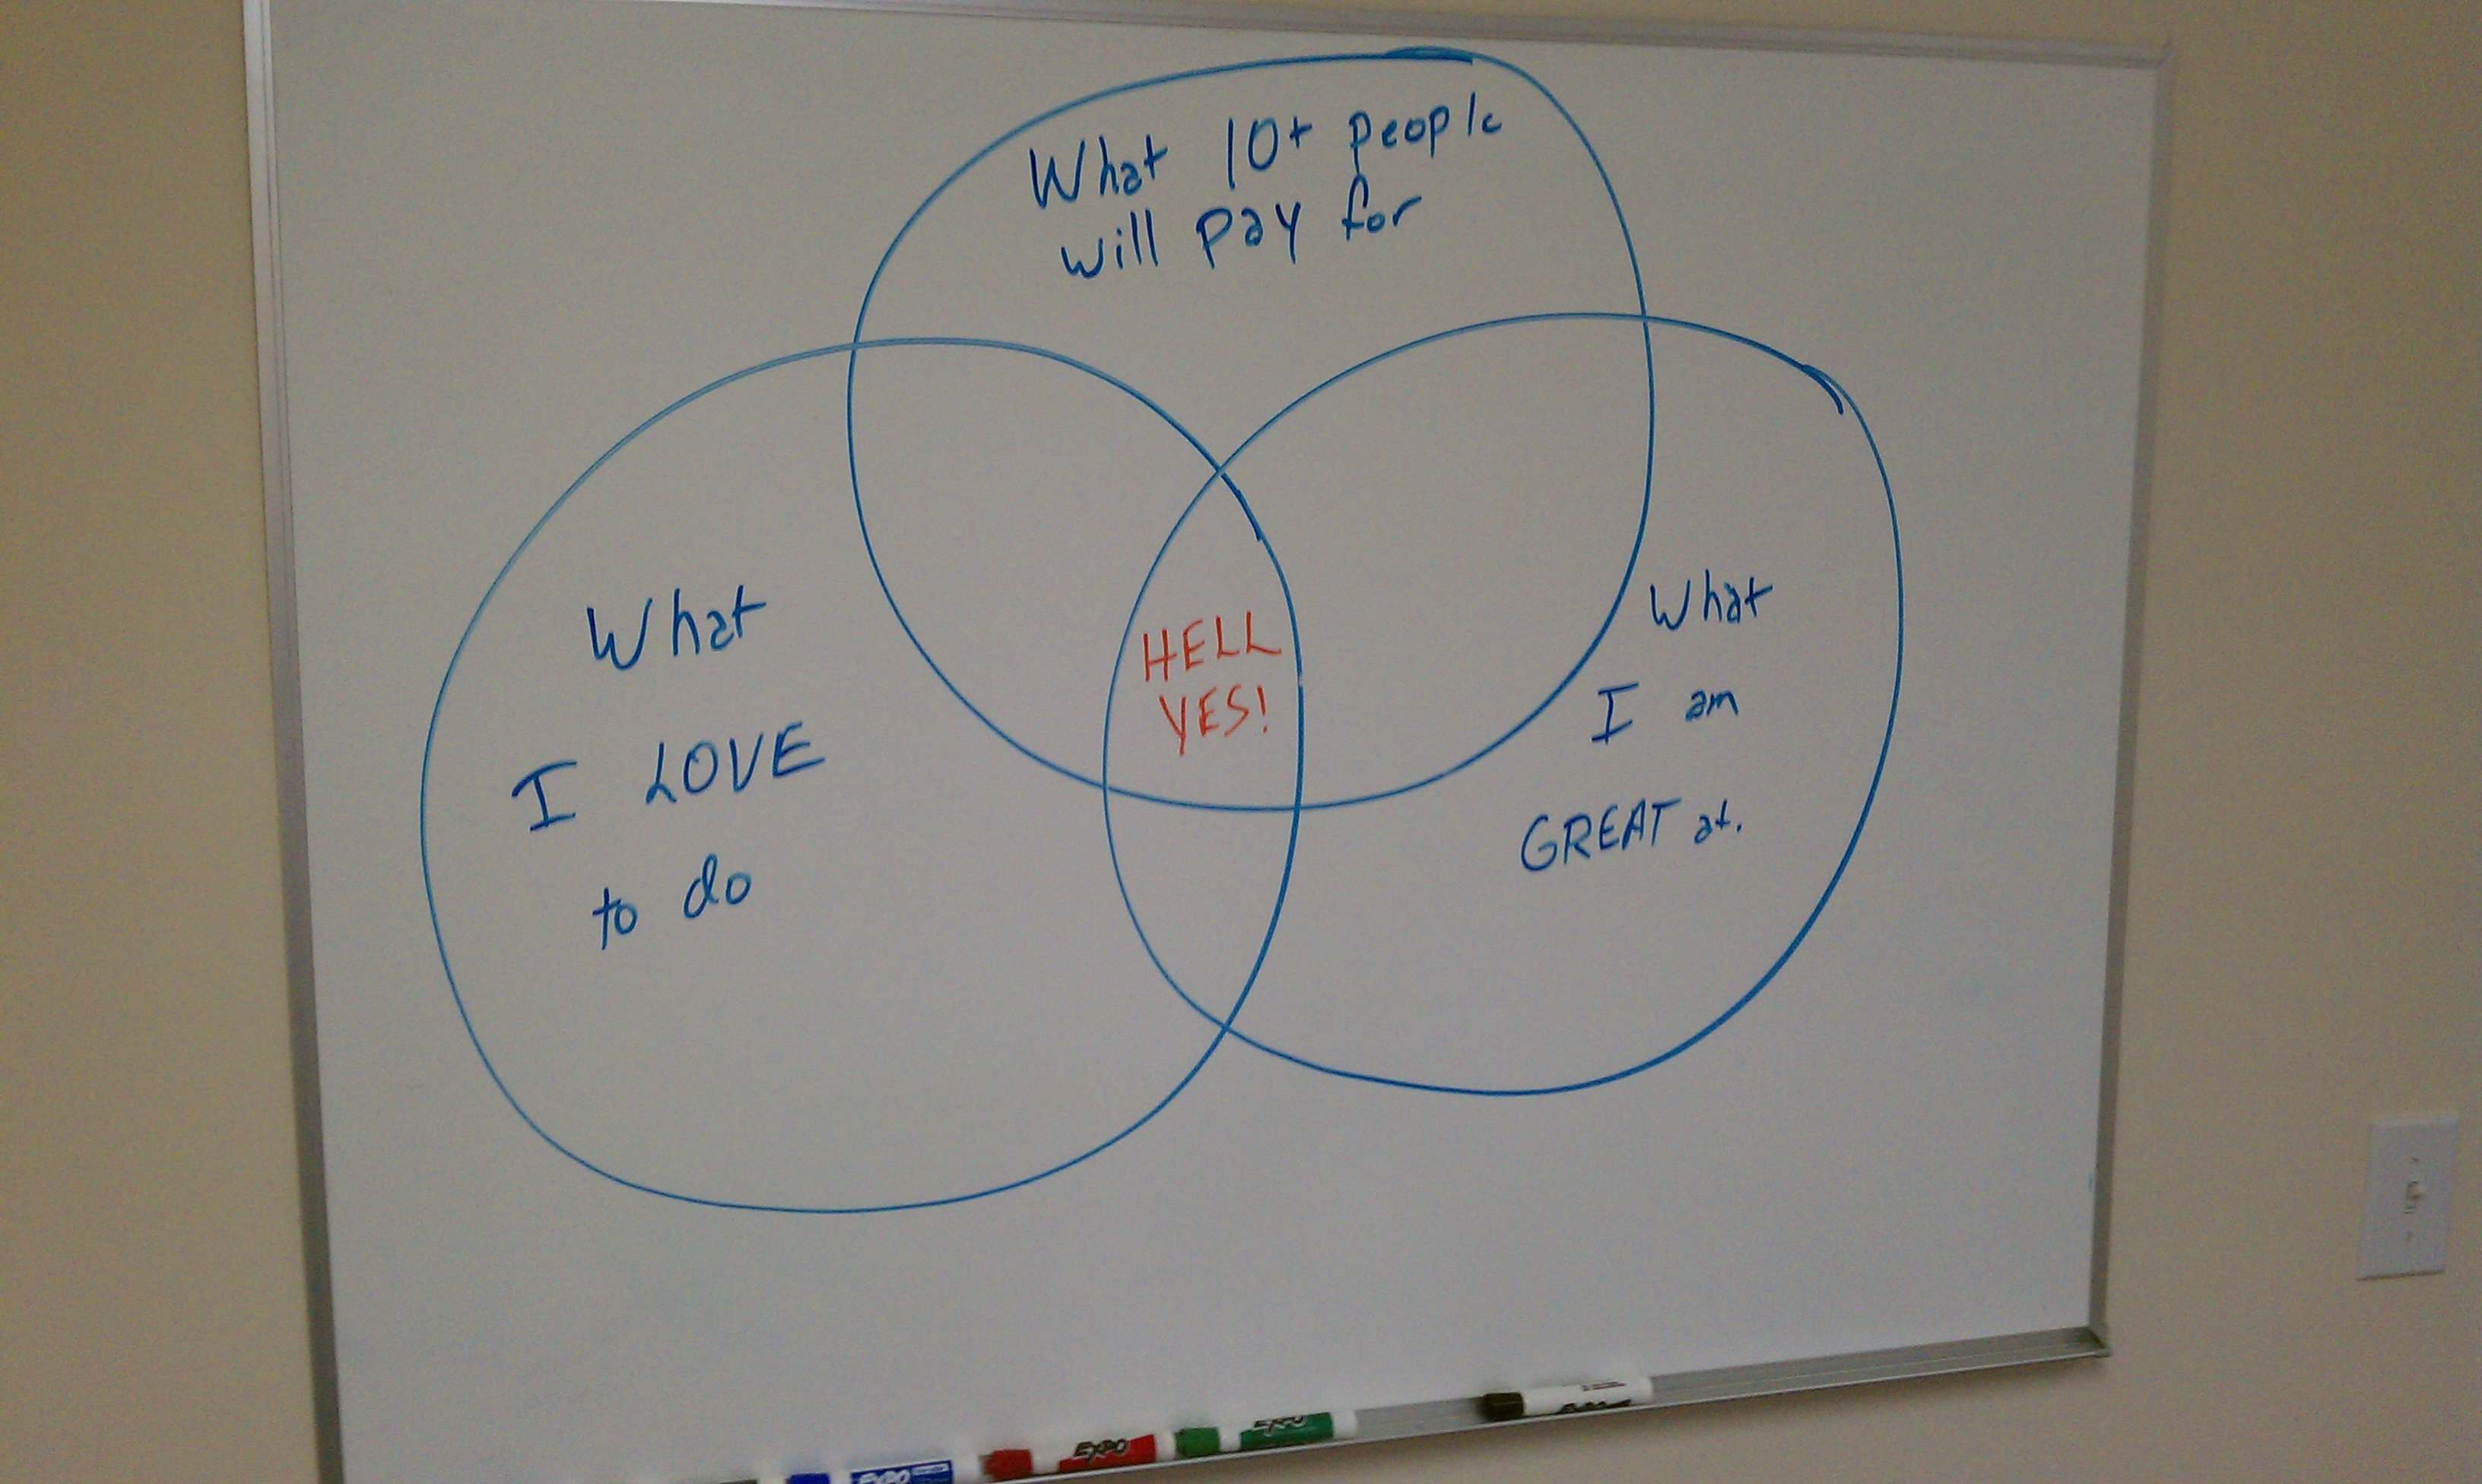 What 10+ people
will pay for
What
I LOVE
to do
HELL
YES!
What
I am
GREAT at.
EXPO
EXPO
EXPO